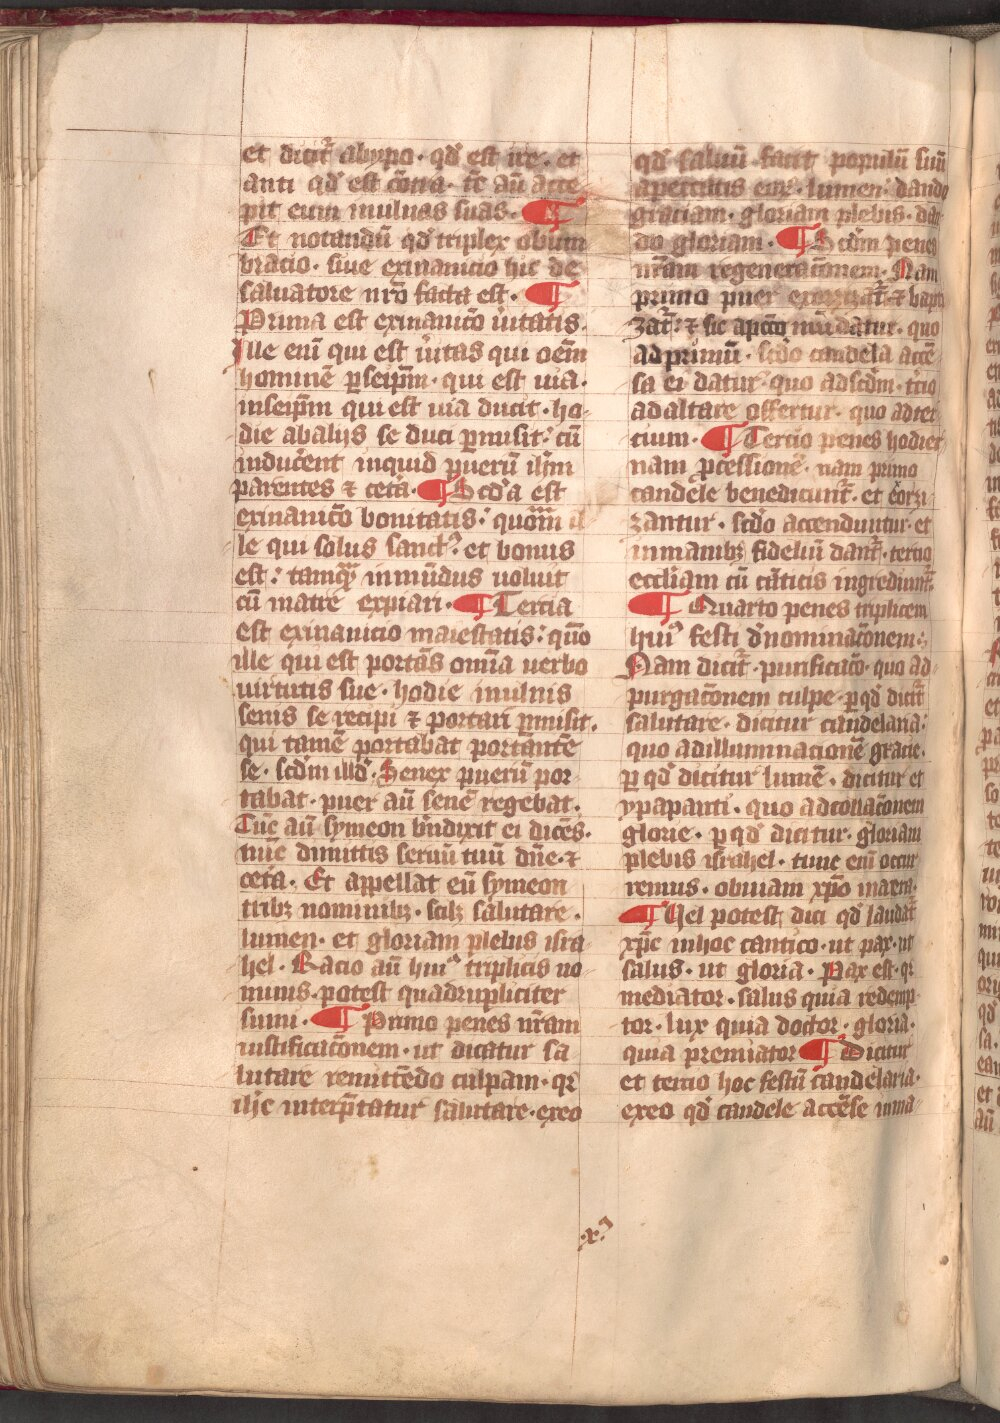 et dicit᷑ abypo · qd̕ est ire · et
anti qd̕ est c̄otra · tē aū acce
pit eum inulnas suas · ¶
Et notandū qd̕ triplex obum
bracio · siue exinanicio hic de
saluatore nr̄o facta est · ¶
Prima est exinanicō ūitatis ·
Jlle eni̅ qui est ūitas qui oēm
hominē ꝑseip̄m · qui est uia ·
inseip̄m qui est uia ducit · ho-
die abalijs se duci ꝑmisit : cū
inducēent inquid puerū ih̄m
parentes ⁊ cetᷓa · ¶ Scd̕a est
exinanicō bonitatis : quom̄ il
le qui solus sanctꝰ et bonus
est : tamqᷓ inmūdus uoluit
cū matre expiari · ¶ Tercia
est exinanicio maiestatis : quō
ille qui est portās om̄ia uerbo
uirtutis sue · hodie inulnis
senis se recipi ⁊ portari ꝑmisit ·
qui tamē portabat portantē
se · scd̄m illd̕ · Senex puerū por-
tabat · puer aū senē regebat ·
Tūc aū symeon bn̄dixit ei dicēs ·
nūc dimittis seruū tuū dn̄e · ⁊
cetᷓa · Et appellat eū symeon
tribꝫ nominibꝫ · scilꝫ salutare ·
lumen · et gloriam plebis isra
hel · Racio aū huiꝰ triplicis no
minis · potest quadrupliciter
sumi · ¶ Primo penes nr̄am
iustificac̄onem · ut dicatur sa
lutare remittēdo culpam · qr̄
ih̄c interp̄tatur salutare · exeo
qd̕ saluū facit populū suū
apeccatis eoꝝ · lumen : dando
graciam · gloriam plebis · dan
do gloriam · ¶ Scd̄m penes
nr̄am regenerac̄onem · Nam
primo puer exorcizat᷑ ⁊ bapti
zat᷑ : ⁊ sic apccō mūdatur · quo
ad primū · scd̄o candela accē
sa ei datur · quo adscd̄m · t̕cio
adaltare offertur · quo adter
cium · ¶ Tercio penes hodier
nam ꝓcessionē · nam primo
candele benedicunt᷑ · et exorzi
zantur · scd̄o accenduntur · et
inmanibꝫ fideliū dant᷑ · tercio
eccl̄iam cū cāticis ingrediunt᷑
¶ Quarto penes triplicem
huiꝰ festi d̕nominac̄onem :
Nam dicit᷑ · purificacō · quo ad
purgac̄onem culpe · ꝑqd̕ dicit᷑
salutare · dicitur candelaria :
quo adilluminacionē gracie ·
ꝑ qd̕ dicitur lumē · dicitur et
ypapanti · quo adcollac̄onem
glorie · ꝑqd̕ dicitur · gloriam
plebis isrl̄hel · tunc eni̅ occur
remus · obuiam xp̄o inaera ·
¶ Uel potest dici qd̕ laudat᷑
xp̄c inhoc cantico · ut pax · ut
salus · ut gloria · Pax est · qr̄
mediator · salus quia redemp-
tor · lux quia doctor · gloria ·
quia premiator ¶ Dicitur
et tercio hoc festū candelaria ·
exeo qd̕ candele accēse inma-
·x·